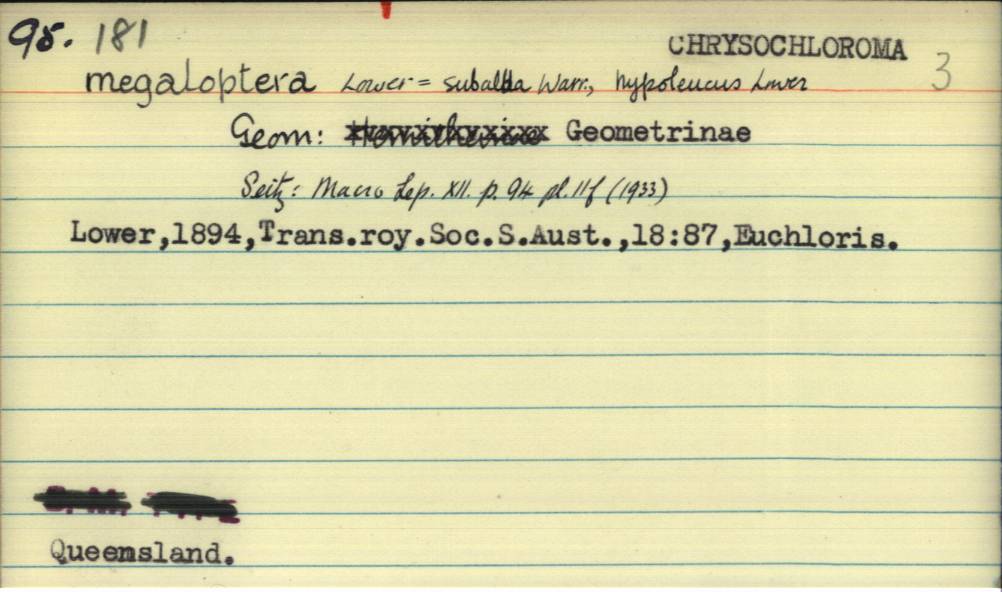 95. 181
CHRYSOCHLOROMA 3
megaloptera Lower = subalba Warr., hypoleucus Lower
Geom: Geometrinae
Seitz: Macro Lep. XII. p. 94 pl. 11f (1933)
Lower,1894,Trans.roy.Soc.S.Aust.,18:87,Euchloris.
Queensland.